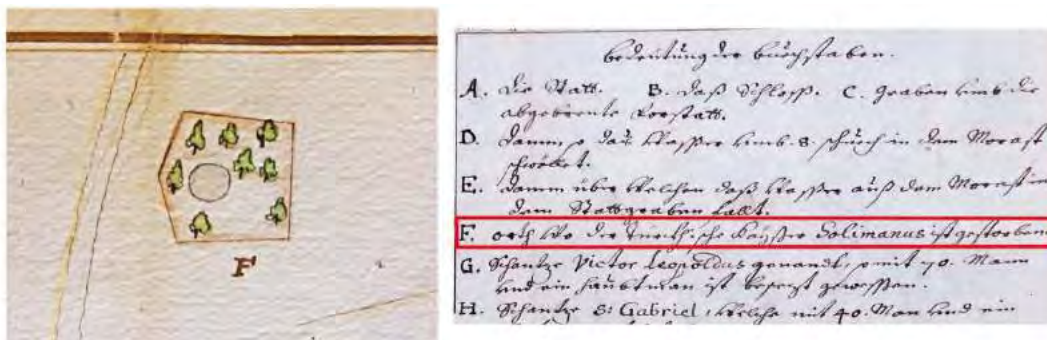 F
bedeutung der buchstaben.
A. die Statt. B. daß Schloß. C. graben umb die
abgebrente Vorstatt.
D. damm, daß Wasser umb in dem Morast
E. damm über welchen daß Wasser auß dem Morast in
dem Stattgraben falt.
F. orth wo der Türckische Kaÿser Solimanus ist gestorben
G. Schantze Victor Leopoldus genandt, mit 70. Mann
und ein haubtman ist besetzt gewessen.
H. Schantze S: Gabriel, welche mit 40. Man und ein